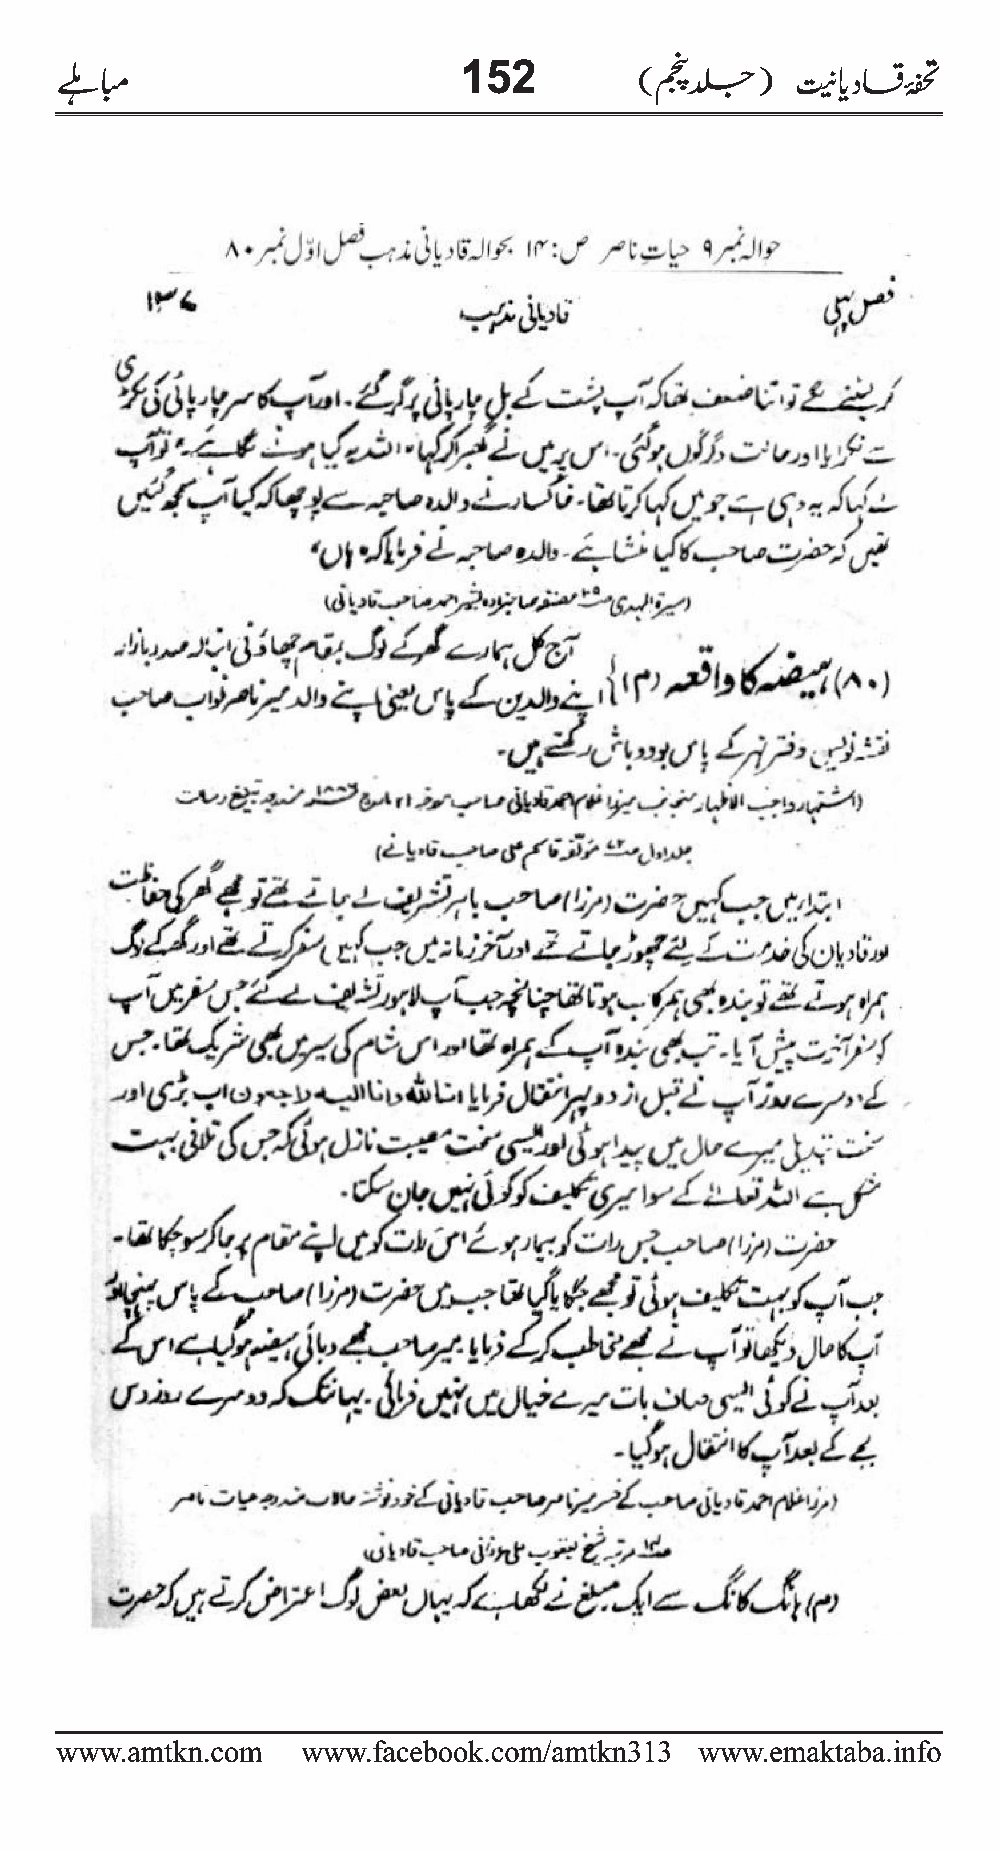 تحفۂ قادیانیت (جلد پنجم) 152 مباہلے
حوالہ نمبر ۹ حیاتِ ناصر ص: ۱۴ بحوالہ قادیانی مذہب فصل اوّل نمبر ۸۰
فصل پہلی قادیانی مذہب ۱۳۷
کر لیٹنے لگے تو اتنا ضعف تھا کہ آپ پشت کے بل چارپائی پر گر گئے۔ اور آپ کا سر چارپائی کی لکڑی
سے ٹکرایا اور حالت دگرگوں ہوگئی۔ اس پر میں نے گھبرا کر کہا، "اللہ یہ کیا ہونے لگا ہے"، تو آپ
نے کہا کہ یہ وہی ہے جو میں کہا کرتا تھا۔ خاکسار نے والدہ صاحبہ سے پوچھا کہ کیا آپ سمجھ گئیں
تھیں کہ حضرت صاحب کا کیا منشا ہے۔ والدہ صاحبہ نے فرمایا کہ ہاں"
(سیرۃ المہدی مصنفہ صاحبزادہ بشیر احمد صاحب قادیانی)
(۸۰) ہیضہ کا واقعہ (م۱) آج کل ہمارے گھر کے لوگ بمقام چھاؤنی انبالہ صدر بازار
اپنے والدین کے پاس یعنی اپنے والد میر ناصر نواب صاحب
نقشہ نویس دفتر نہر کے پاس بودوباش رکھتے ہیں۔
(اشتہار واجب الاظہار منجانب میرزا غلام احمد قادیانی صاحب مورخہ مارچ ۱۸۸۶ مندرجہ تبلیغ رسالت
جلد اول مؤلفہ قاسم علی صاحب قادیانی)
ابتدا میں جب کہیں حضرت (مرزا) صاحب باہر تشریف لے جاتے تھے تو مجھے گھر کی حفاظت
اور قادیان کی خدمت کے لئے چھوڑ جاتے تھے اور آخر زمانہ میں جب کہیں سفر کرتے تھے اور گھر کے لوگ
ہمراہ ہوتے تھے تو بندہ بھی ہمرکاب ہوتا تھا چنانچہ جب آپ لاہور تشریف لے گئے جس سفر میں آپ
کو سفر آخرت پیش آیا۔ تب بھی بندہ آپ کے ہمراہ تھا اور اس شام کی سیر میں بھی شریک تھا۔ جس
کے دوسرے روز آپ نے قبل از دوپہر انتقال فرمایا انا للہ وانا الیہ راجعون اب بڑی اور
سخت تبدیلی میرے حال میں پیدا ہوئی اور ایسی سخت مصیبت نازل ہوئی کہ جس کی تلافی بہت
مشکل ہے اللہ تعالے کے سوا میری تکلیف کو کوئی نہیں جان سکتا۔
حضرت (مرزا) صاحب جس رات کو بیمار ہوئے اس رات کو میں اپنے مقام پر جا کر سو چکا تھا۔
جب آپ کو بہت تکلیف ہوئی تو مجھے جگایا گیا تھا جب میں حضرت (مرزا) صاحب کے پاس پہنچا اور
آپ کا حال دیکھا تو آپ نے مجھے مخاطب کر کے فرمایا میر صاحب مجھے وبائی ہیضہ ہوگیا ہے اس کے
بعد آپ نے کوئی ایسی صاف بات میرے خیال میں نہیں فرمائی۔ یہانتک کہ دوسرے روز دس
بجے کے بعد آپ کا انتقال ہوگیا۔
(مرزا غلام احمد قادیانی صاحب کے خسر میر ناصر صاحب قادیانی کے خودنوشتہ حالات مندرجہ حیات ناصر
مرتبہ شیخ یعقوب علی عرفانی صاحب قادیانی)
(م) ہانگ کانگ سے ایک مبلغ نے لکھا ہے کہ یہاں بعض لوگ اعتراض کرتے ہیں کہ حضرت
www.amtkn.com www.facebook.com/amtkn313 www.emaktaba.info